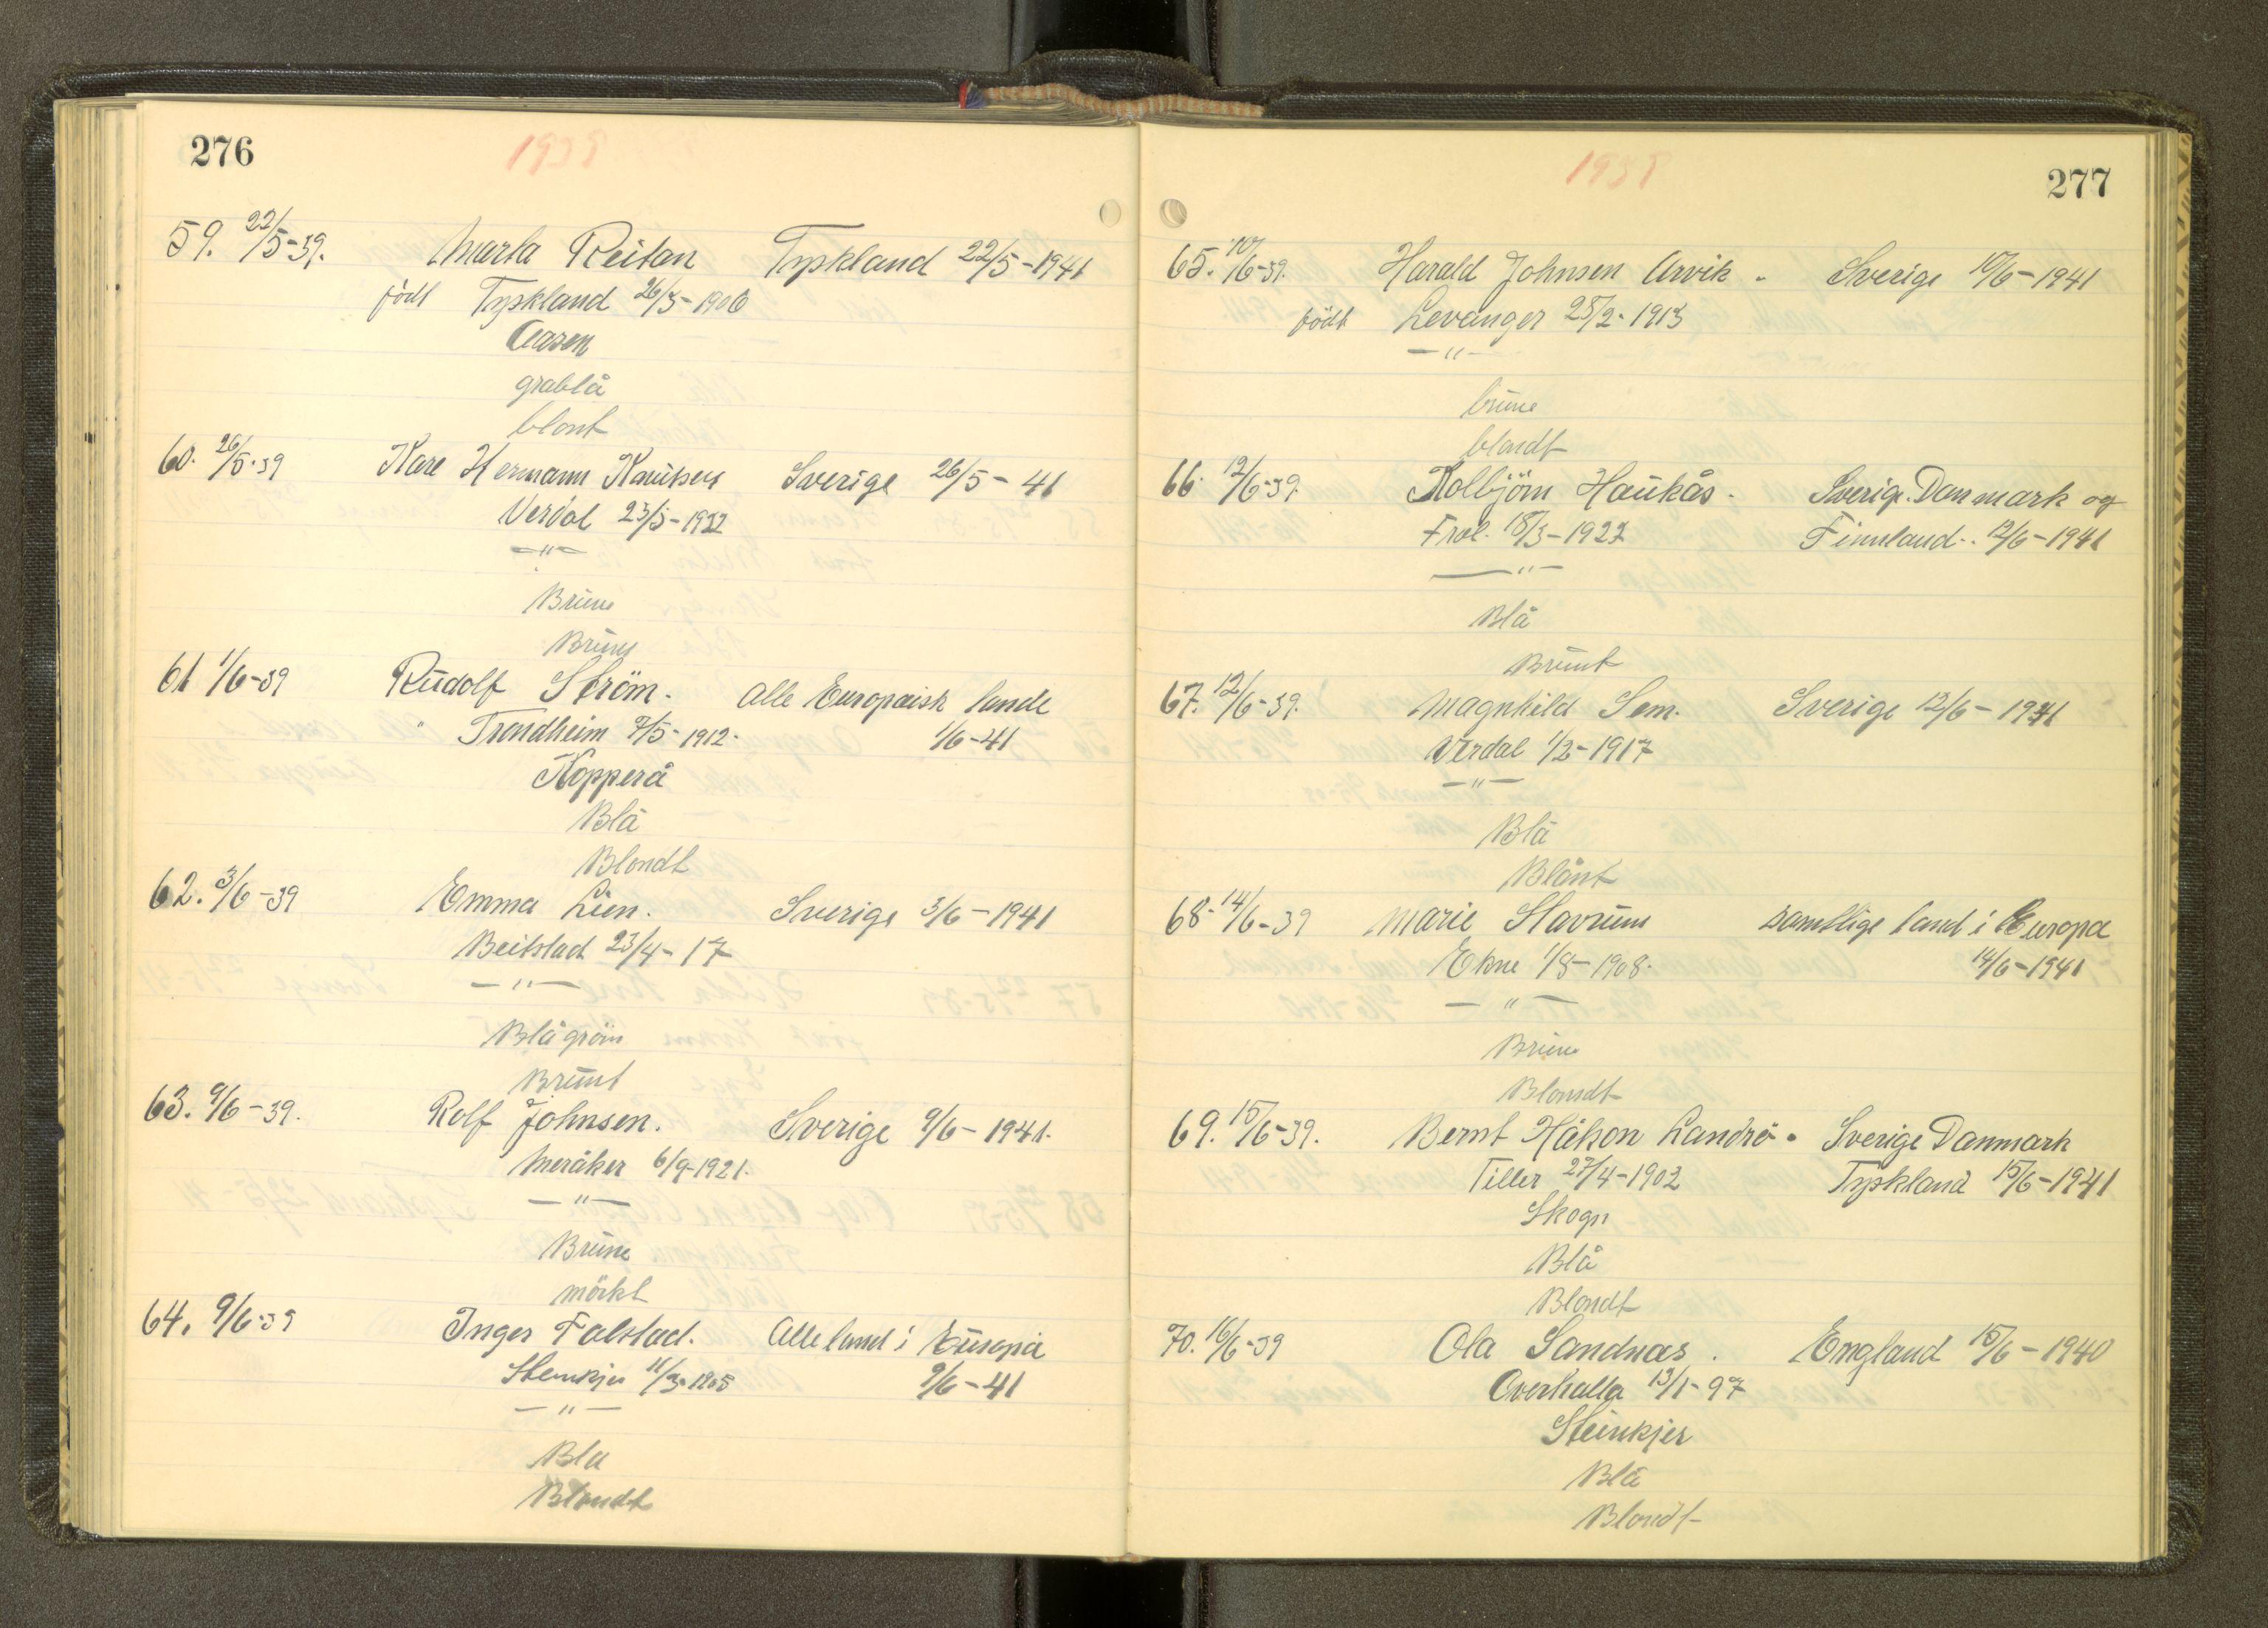 276
1939
59. 22/5-39. Marta Reitan Tyskland 22/5-1941
födt Tyskland 26/3-1906
Aasen
grablå
blont
60. 26/5-39 Kare Hermann Knutsen Sverige 26/5-41
Verdal 23/5-1922
-"-
Brune
Brune
61 1/6-39 Rudolf Ström. Alle Europaisk lande
" Trondheim 7/5-1912. 1/6-41
Kopperå
Blå
Blondt
62. 3/6-39 Emma Lien. Sverige 3/6-1941
Beitstad 23/4-17
-"-
Blågrön
Brunt
63. 9/6-39. Rolf Johnsen. Sverige 9/6-1941.
Meråker 6/9-1921.
-"-
Brune
mörkt
64. 9/6-39 Inger Falstad. Alle land i Europa
Steinkjer 11/3-1905 9/6-41
-"-
Bla
Blondt
1939
277
65. 10/6-39. Harald Johnsen Arvik. Sverige 10/6-1941
födt Levanger 25/2-1913
-"-
brune
blondt
66. 12/6-39. Kolbjörn Haukås. Sverige. Danmark og
Frol. 18/3-1922 Finnland.. 12/6-1941
-"-
Blå
Brunt
67. 12/6-39. Magnhild Sem. Sverige 12/6-1941
Verdal 1/2-1917
-"-
Blå
Blånt
68. 14/6-39 Marie Stavrum samtlige land i Europa
Ekne 1/8-1908. 14/6-1941
-"-
Brune
Blondt
69. 15/6-39. Bernt Håkon Landrö. Sverige Danmark
Tiller 27/4-1902 Tyskland 15/6-1941
Skogn
Blå
Blondt
70. 16/6-39 Ola Sandnas. England 15/6-1940
Overhalla 13/1-97
Steinkjer
Blå
Blondt